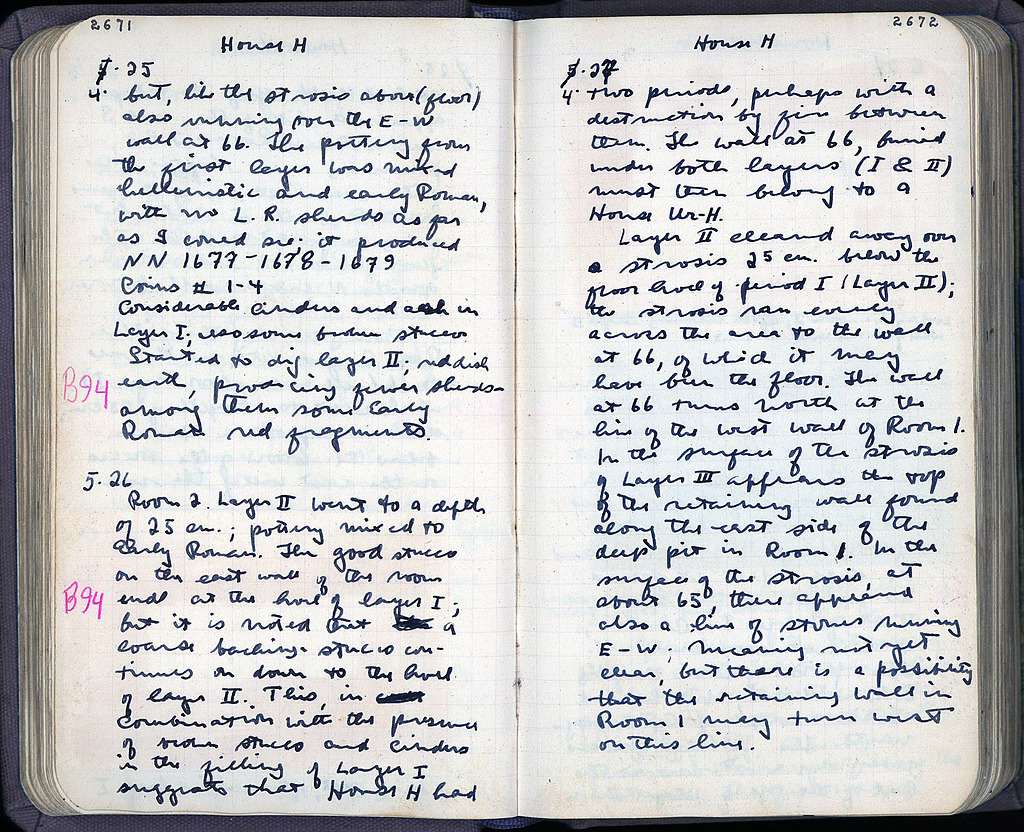 2671
House H
5.25
4. but, like the strosis above (floor)
also running over the E-W
wall at 66. The pottery from
the first layer was mixed
hellenistic and early Roman,
with no L.R. sherds as far
as I could see; it produced
NN 1677-1678-1679
Coins # 1-4
Considerable cinders and ash in
Layer I; also some broken stucco
Started to dig layer II; reddish
B94
earth, producing fewer sherds-
among them some Early
Roman red fragments.
5.26
Room 2. Layer II went to a depth
of 25 cm.; pottery mixed to
Early Roman. The good stucco
on the east wall of the room
B94
ends at the level of layer I;
but it is noted that a
coarse backing-stucco con-
tinues on down to the level
of layer II. This, in
combination with the presence
of broken stucco and cinders
in the filling of Layer I
suggests that House H had
2672
House H
5.27
4. two periods, perhaps with a
destruction by fire between
them. The wall at 66, buried
under both layers (I & II)
must then belong to a
House Ur-H.
Layer II cleared away over
a strosis 25 cm. below the
floor level of period I (Layer II);
the strosis ran evenly
across the area to the wall
at 66, of which it may
have been the floor. The wall
at 66 turns north at the
line of the west wall of Room 1.
In the surface of the strosis
of Layer III appears the top
of the retaining wall found
along the east side of the
deep pit in Room 1. In the
surface of the strosis, at
about 65, there appeared
also a line of stones running
E-W; meaning not yet
clear, but there is a possibility
that the retaining wall in
Room 1 may turn west
on this line.